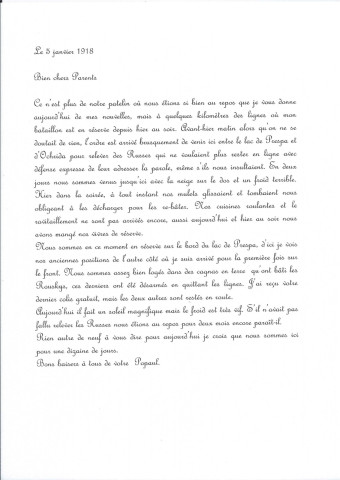 Le 5 janvier 1918
Bien chers Parents
Ce n'est plus de notre patelin où nous étions si bien au repos que je vous donne
aujourd'hui de mes nouvelles, mais à quelques kilomètres des lignes où mon
bataillon est en réserve depuis hier au soir. Avant-hier matin alors qu'on ne se
doutait de rien, l'ordre est arrivé brusquement de venir ici entre le lac de Prespa et
d'Ochrida pour relever des Russes qui ne voulaient plus rester en ligne avec
défense expresse de leur adresser la parole, même s'ils nous insultaient. En deux
jours nous sommes venus jusqu'ici avec la neige sur le dos et un froid terrible.
Hier dans la soirée, à tout instant nos mulets glissaient et tombaient nous
obligeant à les décharger pour les re-bâter. Nos cuisines roulantes et le
ravitaillement ne sont pas arrivés encore, aussi aujourd'hui et hier au soir nous
avons mangé nos vivres de réserve.
Nous sommes en ce moment en réserve sur le bord du lac de Prespa, d'ici je vois
nos anciennes positions de l'autre côté où je suis arrivé pour la première fois sur
le front. Nous sommes assez bien logés dans des cagnas en terre qu'ont bâti les
Rouskys, ces derniers ont été désarmés en quittant les lignes. J'ai reçu votre
dernier colis gratuit, mais les deux autres sont restés en route.
Aujourd'hui il fait un soleil magnifique mais le froid est très vif. S'il n'avait pas
fallu relever les Russes nous étions au repos pour deux mois encore paraît-il.
Rien autre de neuf à vous dire pour aujourd'hui je crois que nous sommes ici
pour une dizaine de jours.
Bons baisers à tous de votre Papaul.